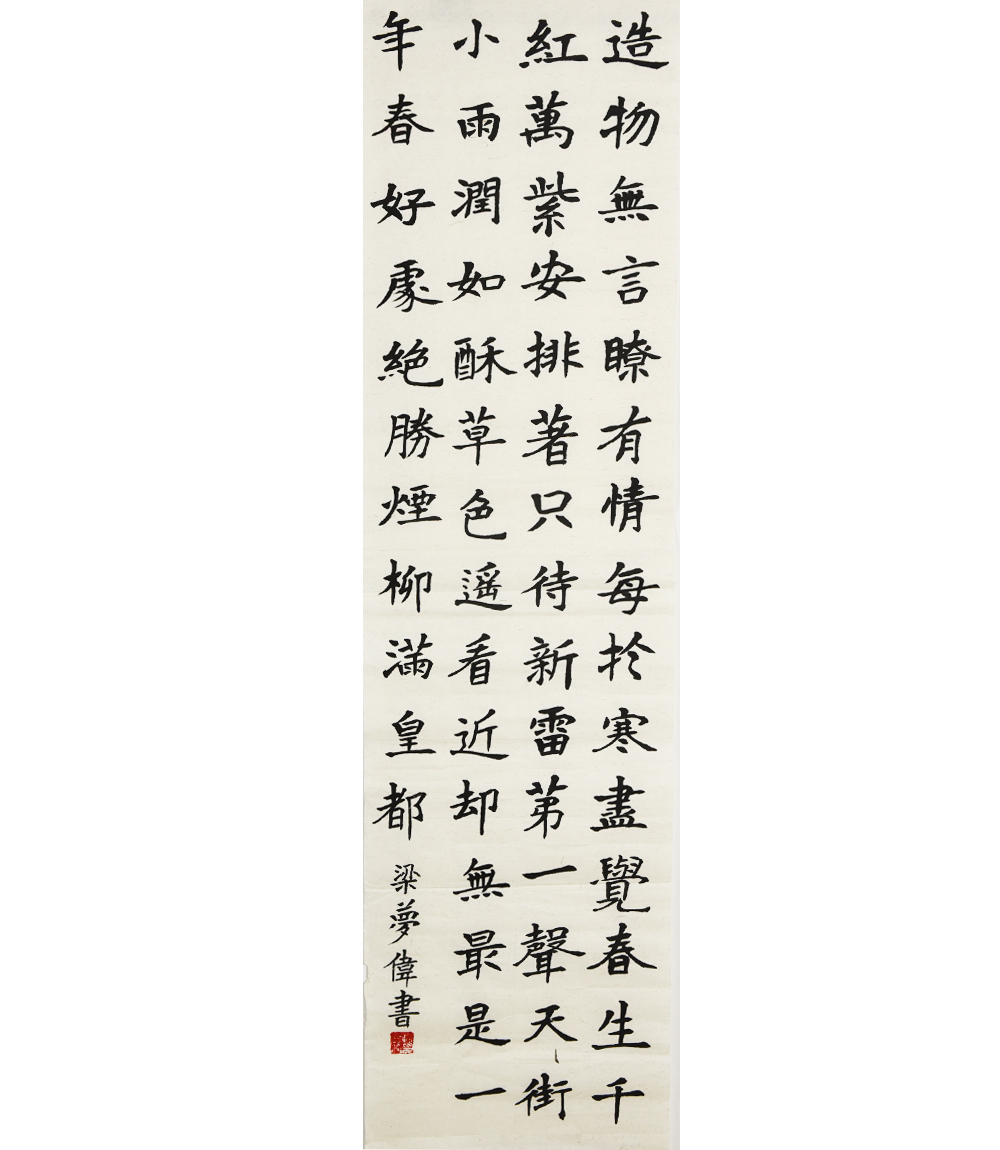 造物無言瞭有情每扵寒盡覺春生千
紅萬紫安排著只待新雷苐一聲天街
小雨潤如酥草色遥看近却無最是一
年春好處絕勝煙柳滿皇都
梁夢偉書